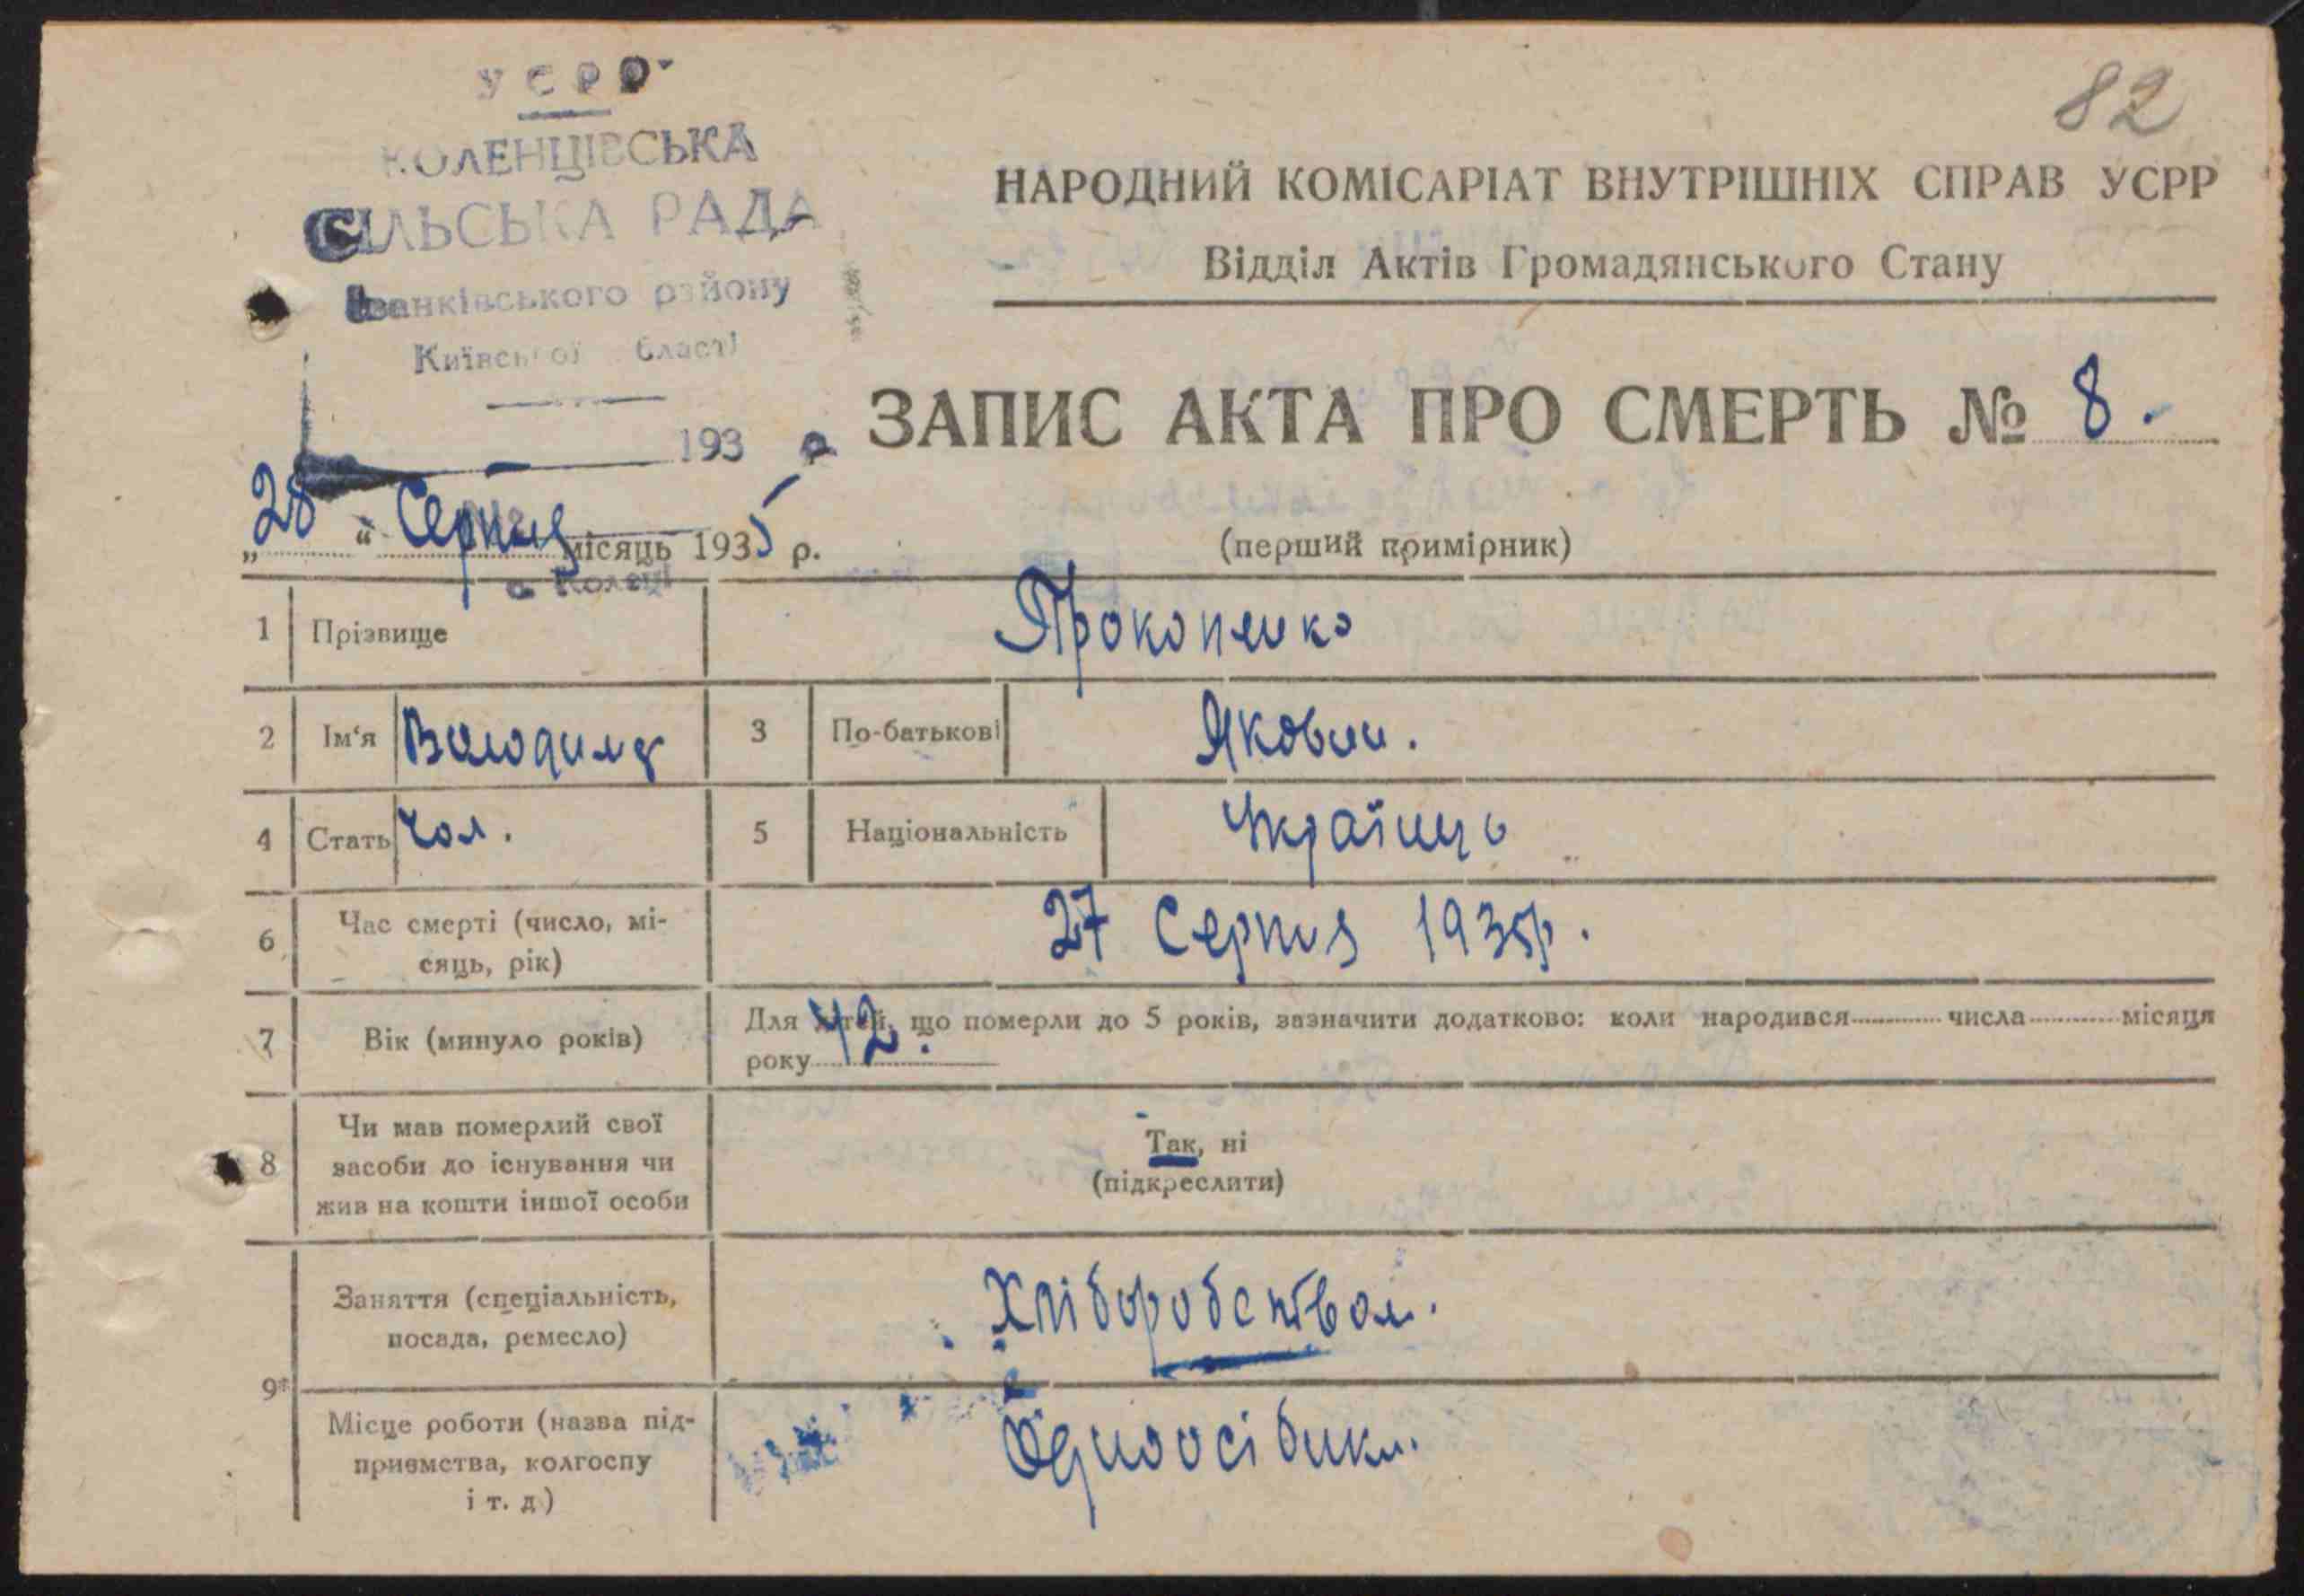 УСРР
КОЛЕНЦІВСЬКА
СІЛЬСЬКА РАДА
Іванківського району
Київської області
193
82
НАРОДНИЙ КОМІСАРІАТ ВНУТРІШНІХ СПРАВ УСРР
Відділ Актів Громадянського Стану
ЗАПИС АКТА ПРО СМЕРТЬ № 8.
„28“ Серпня місяць 1935 р.
(перший примірник)
1 Прізвище Прокопенко
2 Ім'я Володимир 3 По-батькові Якович.
4 Стать Чол. 5 Національність Українець
6 Час смерті (число, мі-
сяць, рік) 27 Серпня 1935р.
7 Вік (минуло років) Для дітей, що померли до 5 років, зазначити додатково: коли народився числа місяця
року 42.
8 Чи мав померлий свої
засоби до існування чи
жив на кошти іншої особи
Так, ні
(підкреслити)
9 Заняття (спеціальність,
посада, ремесло) Хліборобством.
Місце роботи (назва під-
приємства, колгоспу
і т. д.)